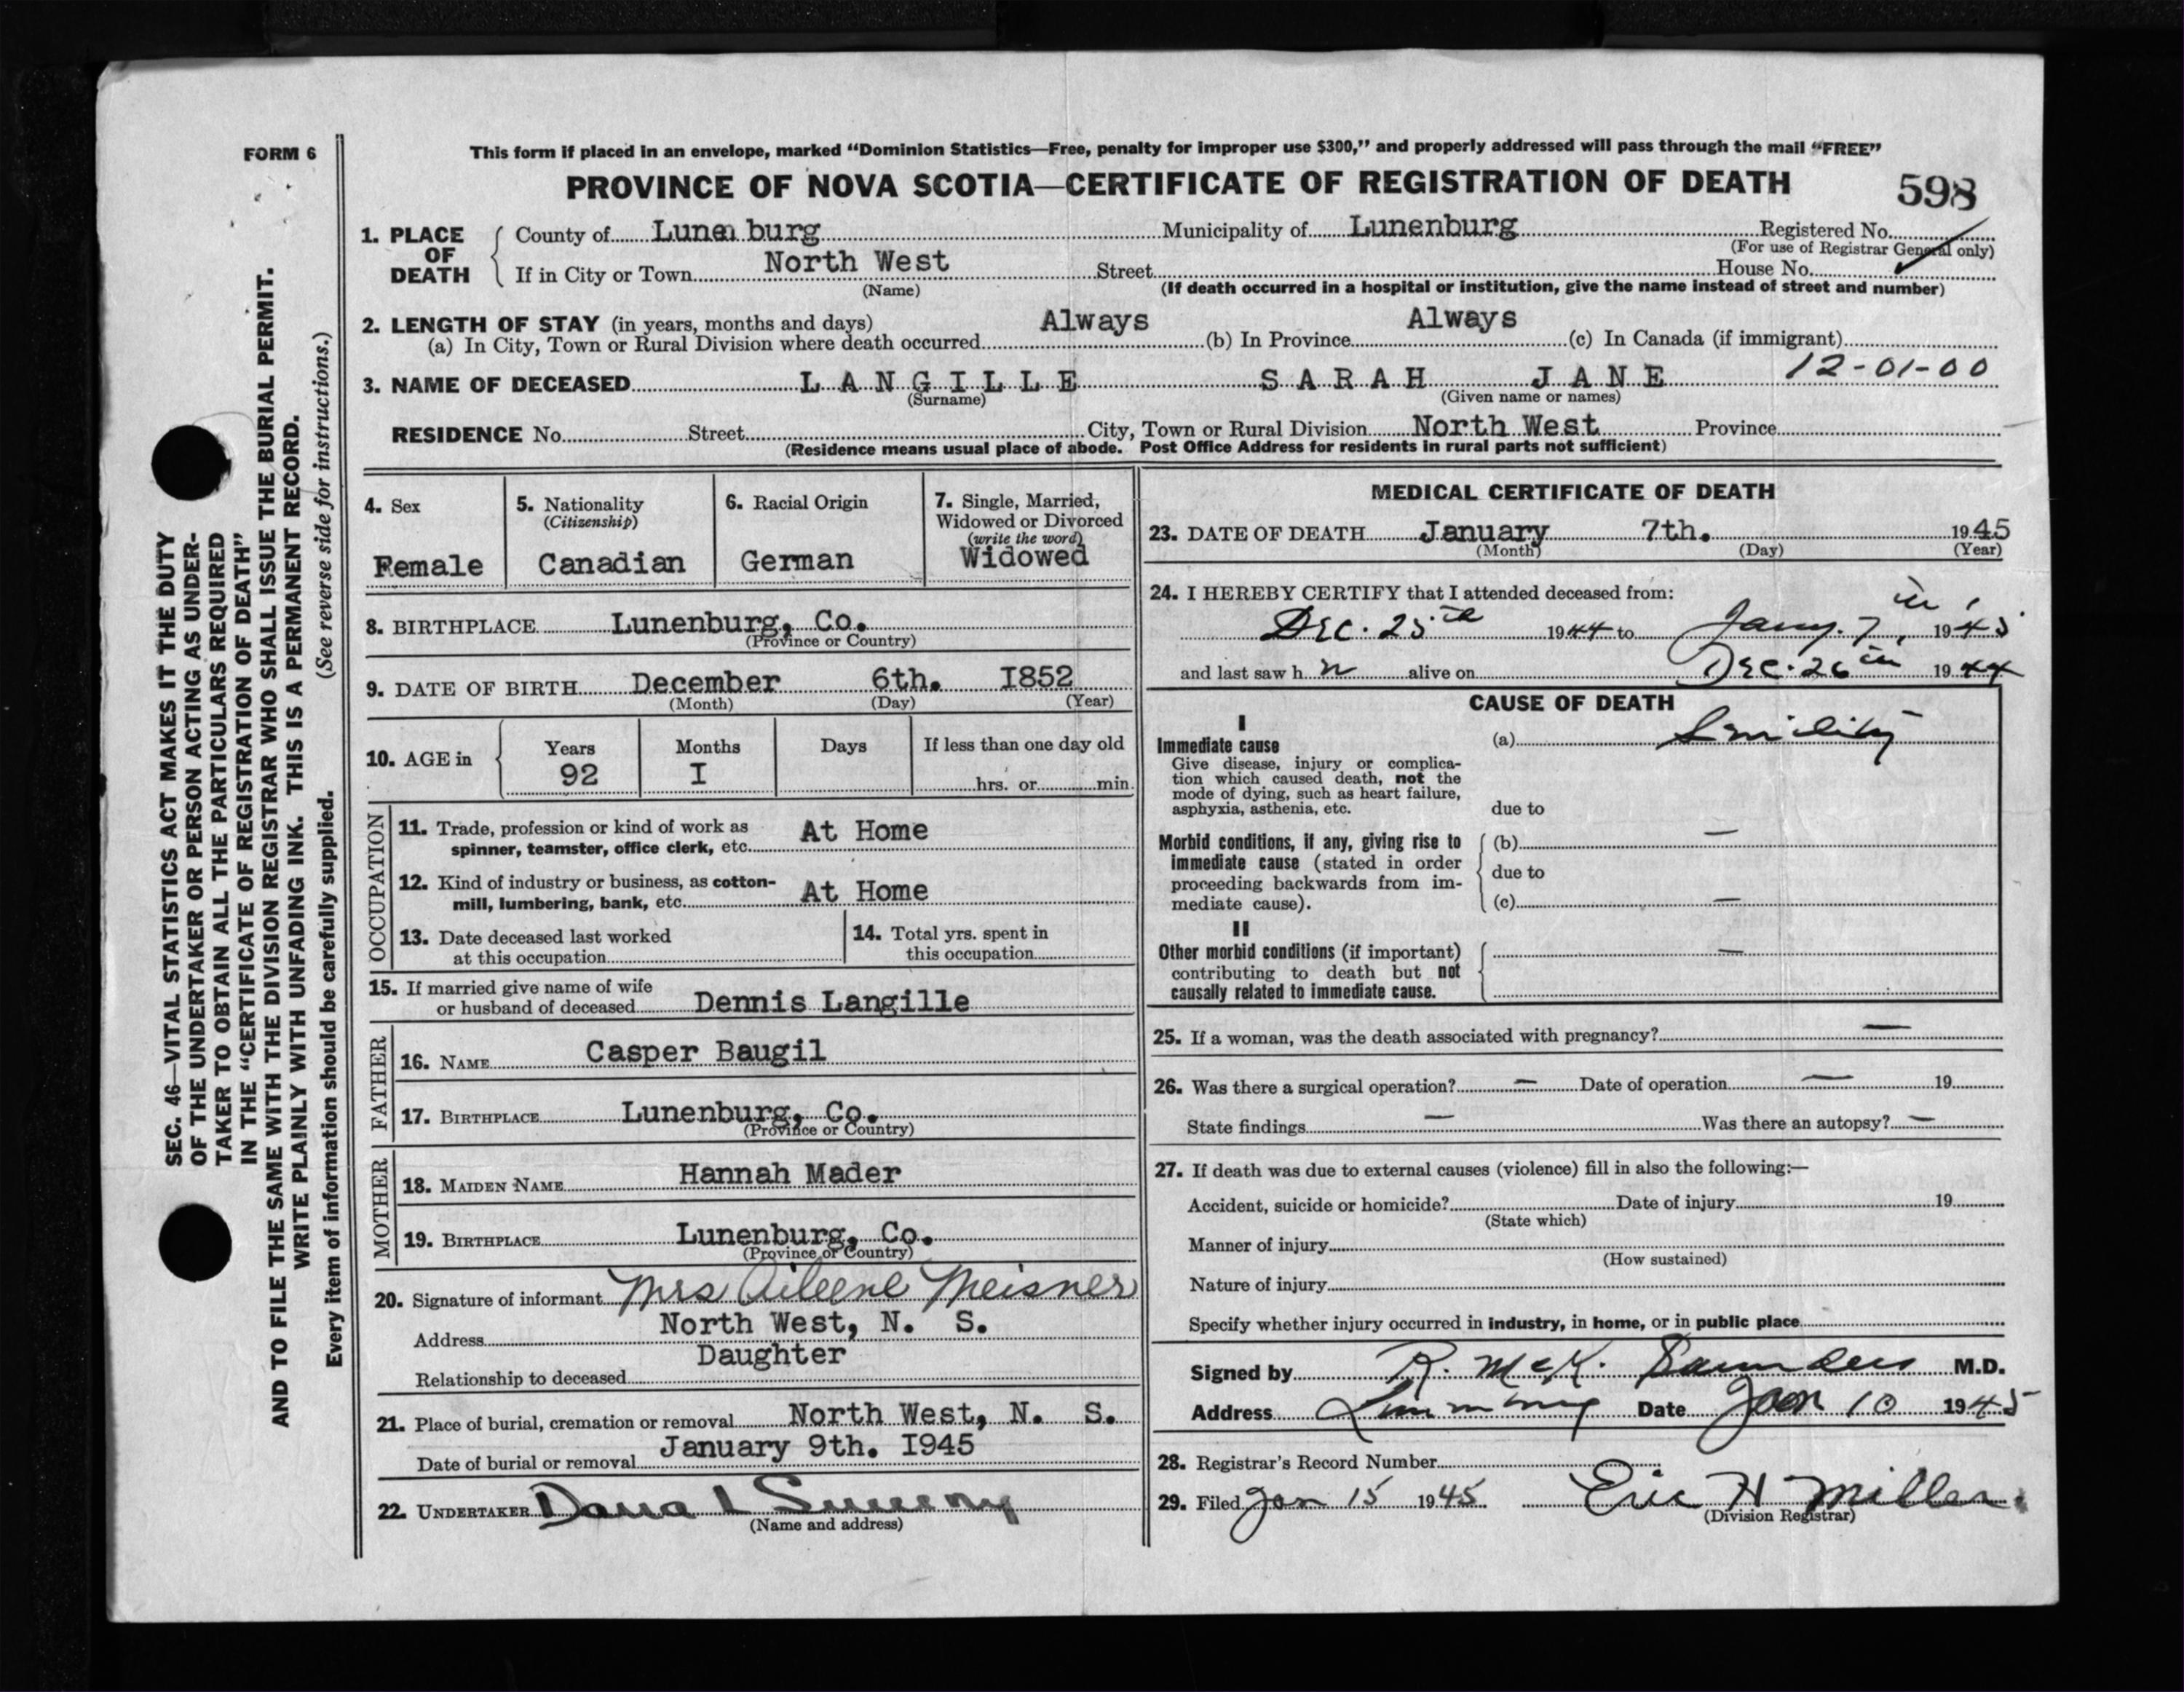 FORM 6
This form if placed in an envelope, marked “Dominion Statistics—Free, penalty for improper use $300,” and properly addressed will pass through the mail “FREE”
PROVINCE OF NOVA SCOTIA—CERTIFICATE OF REGISTRATION OF DEATH
598
1. PLACE OF DEATH
County of Lunenburg Municipality of Lunenburg Registered No.
(For use of Registrar General only)
If in City or Town North West Street House No.
(Name) (If death occurred in a hospital or institution, give the name instead of street and number)
2. LENGTH OF STAY (in years, months and days)
(a) In City, Town or Rural Division where death occurred Always (b) In Province Always (c) In Canada (if immigrant)
3. NAME OF DECEASED LANGILLE SARAH JANE 12-01-00
(Surname) (Given name or names)
RESIDENCE No. Street City, Town or Rural Division North West Province
(Residence means usual place of abode. Post Office Address for residents in rural parts not sufficient)
SEC. 46—VITAL STATISTICS ACT MAKES IT THE DUTY
OF THE UNDERTAKER OR PERSON ACTING AS UNDER-
TAKER TO OBTAIN ALL THE PARTICULARS REQUIRED
IN THE “CERTIFICATE OF REGISTRATION OF DEATH”
AND TO FILE THE SAME WITH THE DIVISION REGISTRAR WHO SHALL ISSUE THE BURIAL PERMIT.
WRITE PLAINLY WITH UNFADING INK. THIS IS A PERMANENT RECORD.
(See reverse side for instructions.)
Every item of information should be carefully supplied.
4. Sex
Female
5. Nationality
(Citizenship)
Canadian
6. Racial Origin
German
7. Single, Married,
Widowed or Divorced
(write the word)
Widowed
8. BIRTHPLACE Lunenburg, Co.
(Province or Country)
9. DATE OF BIRTH December 6th. I852
(Month) (Day) (Year)
10. AGE in
Years Months Days If less than one day old
92 I hrs. or min.
OCCUPATION
11. Trade, profession or kind of work as
spinner, teamster, office clerk, etc. At Home
12. Kind of industry or business, as cotton-
mill, lumbering, bank, etc. At Home
13. Date deceased last worked
at this occupation
14. Total yrs. spent in
this occupation
15. If married give name of wife
or husband of deceased Dennis Langille
FATHER
16. NAME Casper Baugil
17. BIRTHPLACE Lunenburg, Co.
(Province or Country)
MOTHER
18. MAIDEN NAME Hannah Mader
19. BIRTHPLACE Lunenburg, Co.
(Province or Country)
20. Signature of informant Mrs Aileene Meisner
Address North West, N. S.
Relationship to deceased Daughter
21. Place of burial, cremation or removal North West, N. S.
Date of burial or removal January 9th. I945
22. UNDERTAKER
(Name and address)
MEDICAL CERTIFICATE OF DEATH
23. DATE OF DEATH January 7th. 1945
(Month) (Day) (Year)
24. I HEREBY CERTIFY that I attended deceased from:
Dec. 25th 1944 to Jany. 7th, 1945
and last saw h alive on Dec. 26th 1944
CAUSE OF DEATH
I
Immediate cause
Give disease, injury or complica-
tion which caused death, not the
mode of dying, such as heart failure,
asphyxia, asthenia, etc.
(a) Senility
due to
Morbid conditions, if any, giving rise to
immediate cause (stated in order
proceeding backwards from im-
mediate cause).
(b) —
due to
(c) —
II
Other morbid conditions (if important)
contributing to death but not
causally related to immediate cause.
—
25. If a woman, was the death associated with pregnancy? —
26. Was there a surgical operation? — Date of operation — 19
State findings — Was there an autopsy? —
27. If death was due to external causes (violence) fill in also the following:—
Accident, suicide or homicide? Date of injury 19
(State which)
Manner of injury
(How sustained)
Nature of injury
Specify whether injury occurred in industry, in home, or in public place
Signed by R. McK. Saunders M.D.
Address Date Jan 10 1945
28. Registrar's Record Number
29. Filed Jan 15 1945 Eric H Miller.
(Division Registrar)